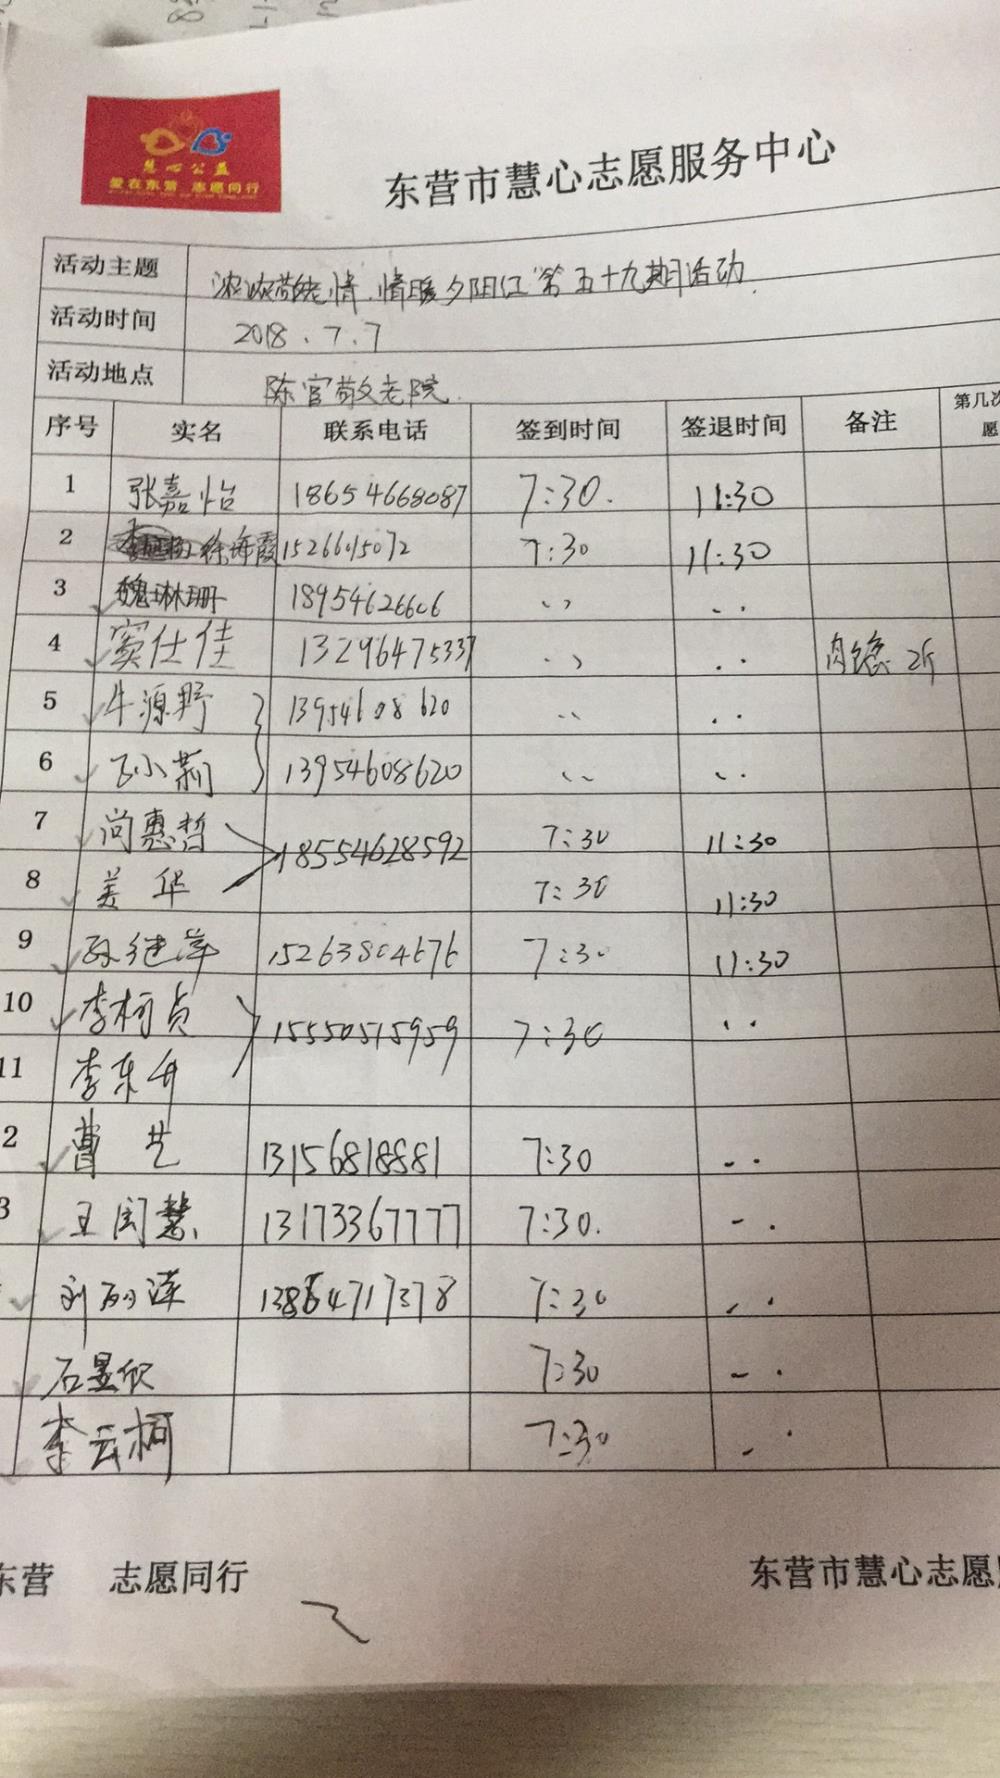 慧心公益
爱在东营 志愿同行
东营市慧心志愿服务中心
活动主题 浓浓敬老情.情暖夕阳红"第五十九期活动
活动时间 2018.7.7
活动地点 陈官敬老院.
序号 实名 联系电话 签到时间 签退时间 备注 第几次
愿
1 张嘉怡 18654668087 7:30. 11:30
2 徐海霞 15266015072 7:30 11:30
3 魏琳珊 18954626606
4 窦仕佳 13296475337 2斤
5 牛源野 13954608620
6 孙小莉 13954608620
7 尚惠哲 18554628592 7:30 11:30
8 姜华 7:30 11:30
9 孙继萍 15263804676 7:30 11:30
10 李柯贞 15550515959 7:30
11 李东升
2 曹艺 13156818881 7:30
3 王闰慧 13173367777 7:30.
刘 13864717378 7:30
石昱欣 7:30
李云柯 7:30
东营 志愿同行
东营市慧心志愿